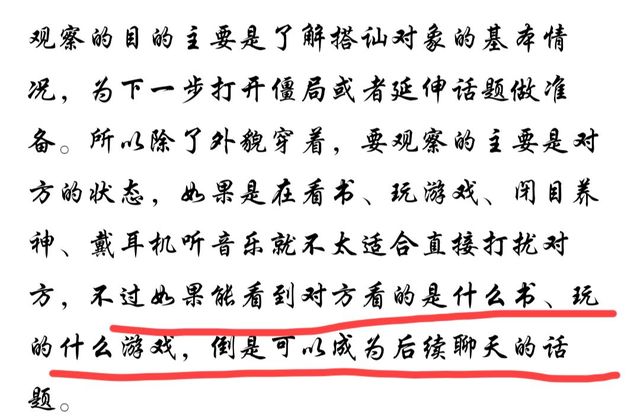 观察的目的主要是了解搭讪对象的基本情
况，为下一步打开僵局或者延伸话题做准
备。所以除了外貌穿着，要观察的主要是对
方的状态，如果是在看书、玩游戏、闭目养
神、戴耳机听音乐就不太适合直接打扰对
方，不过如果能看到对方看的是什么书、玩
的什么游戏，倒是可以成为后续聊天的话
题。